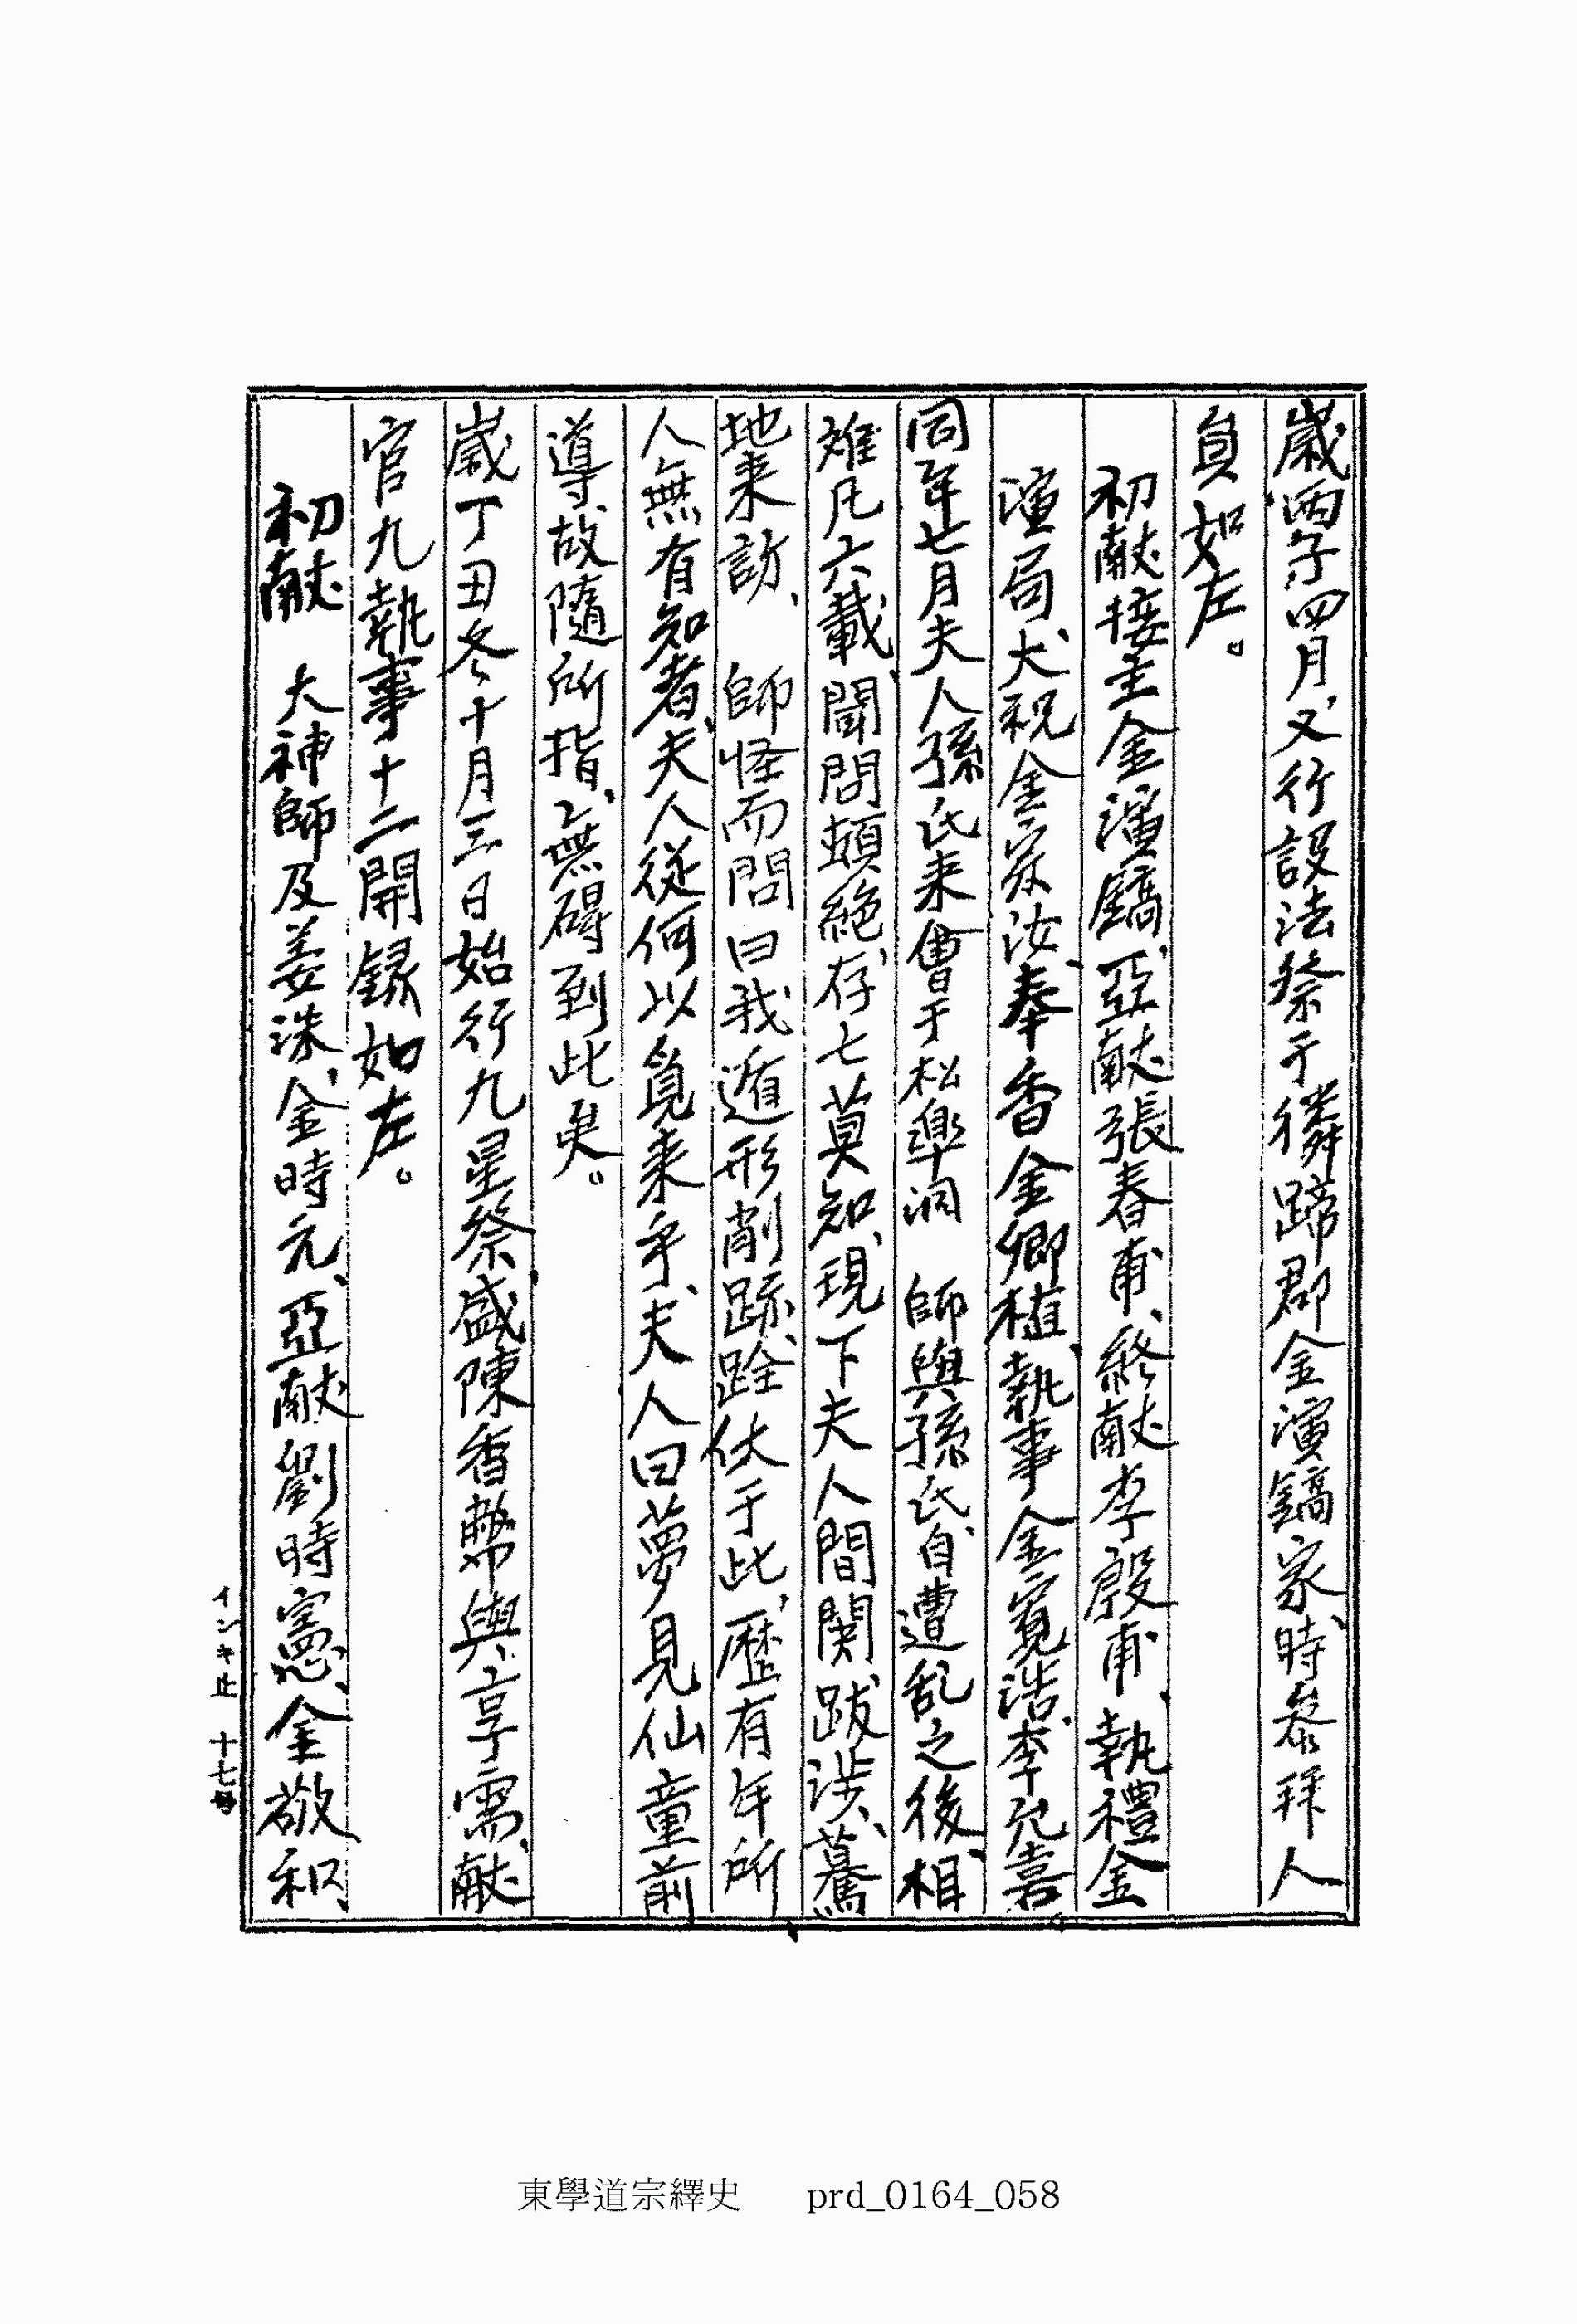 歲丙子四月、又行設法祭于麟蹄郡金演鎬家、時叅拜人
員如左。
初献接主金演鎬、亞献張春甫、終献李殷甫、執禮金
演局、大祝金宗汝、奉香金卿植、執事金寬浩、李允喜。
同年七月夫人孫氏来會于松皐洞　師與孫氏、自遭乱之後、相
难凡六載、聞問頓絶、存亡莫知、現下夫人間関跋涉、驀
地来訪、　師怪而問曰我遁形削跡、跧伏于此、歷有年所、
人無有知者、夫人從何以覓来乎、夫人曰夢見仙童前
導、故隨所指、無碍到此矣。
歲丁丑冬十月三日始行九星祭、盛陳香幣與享需、献
官九執事十二開録如左。
初献　大神師及姜洙、金時元、亞献劉時憲、金敬和、
インキ止　十七号
東學道宗繹史　prd_0164_058